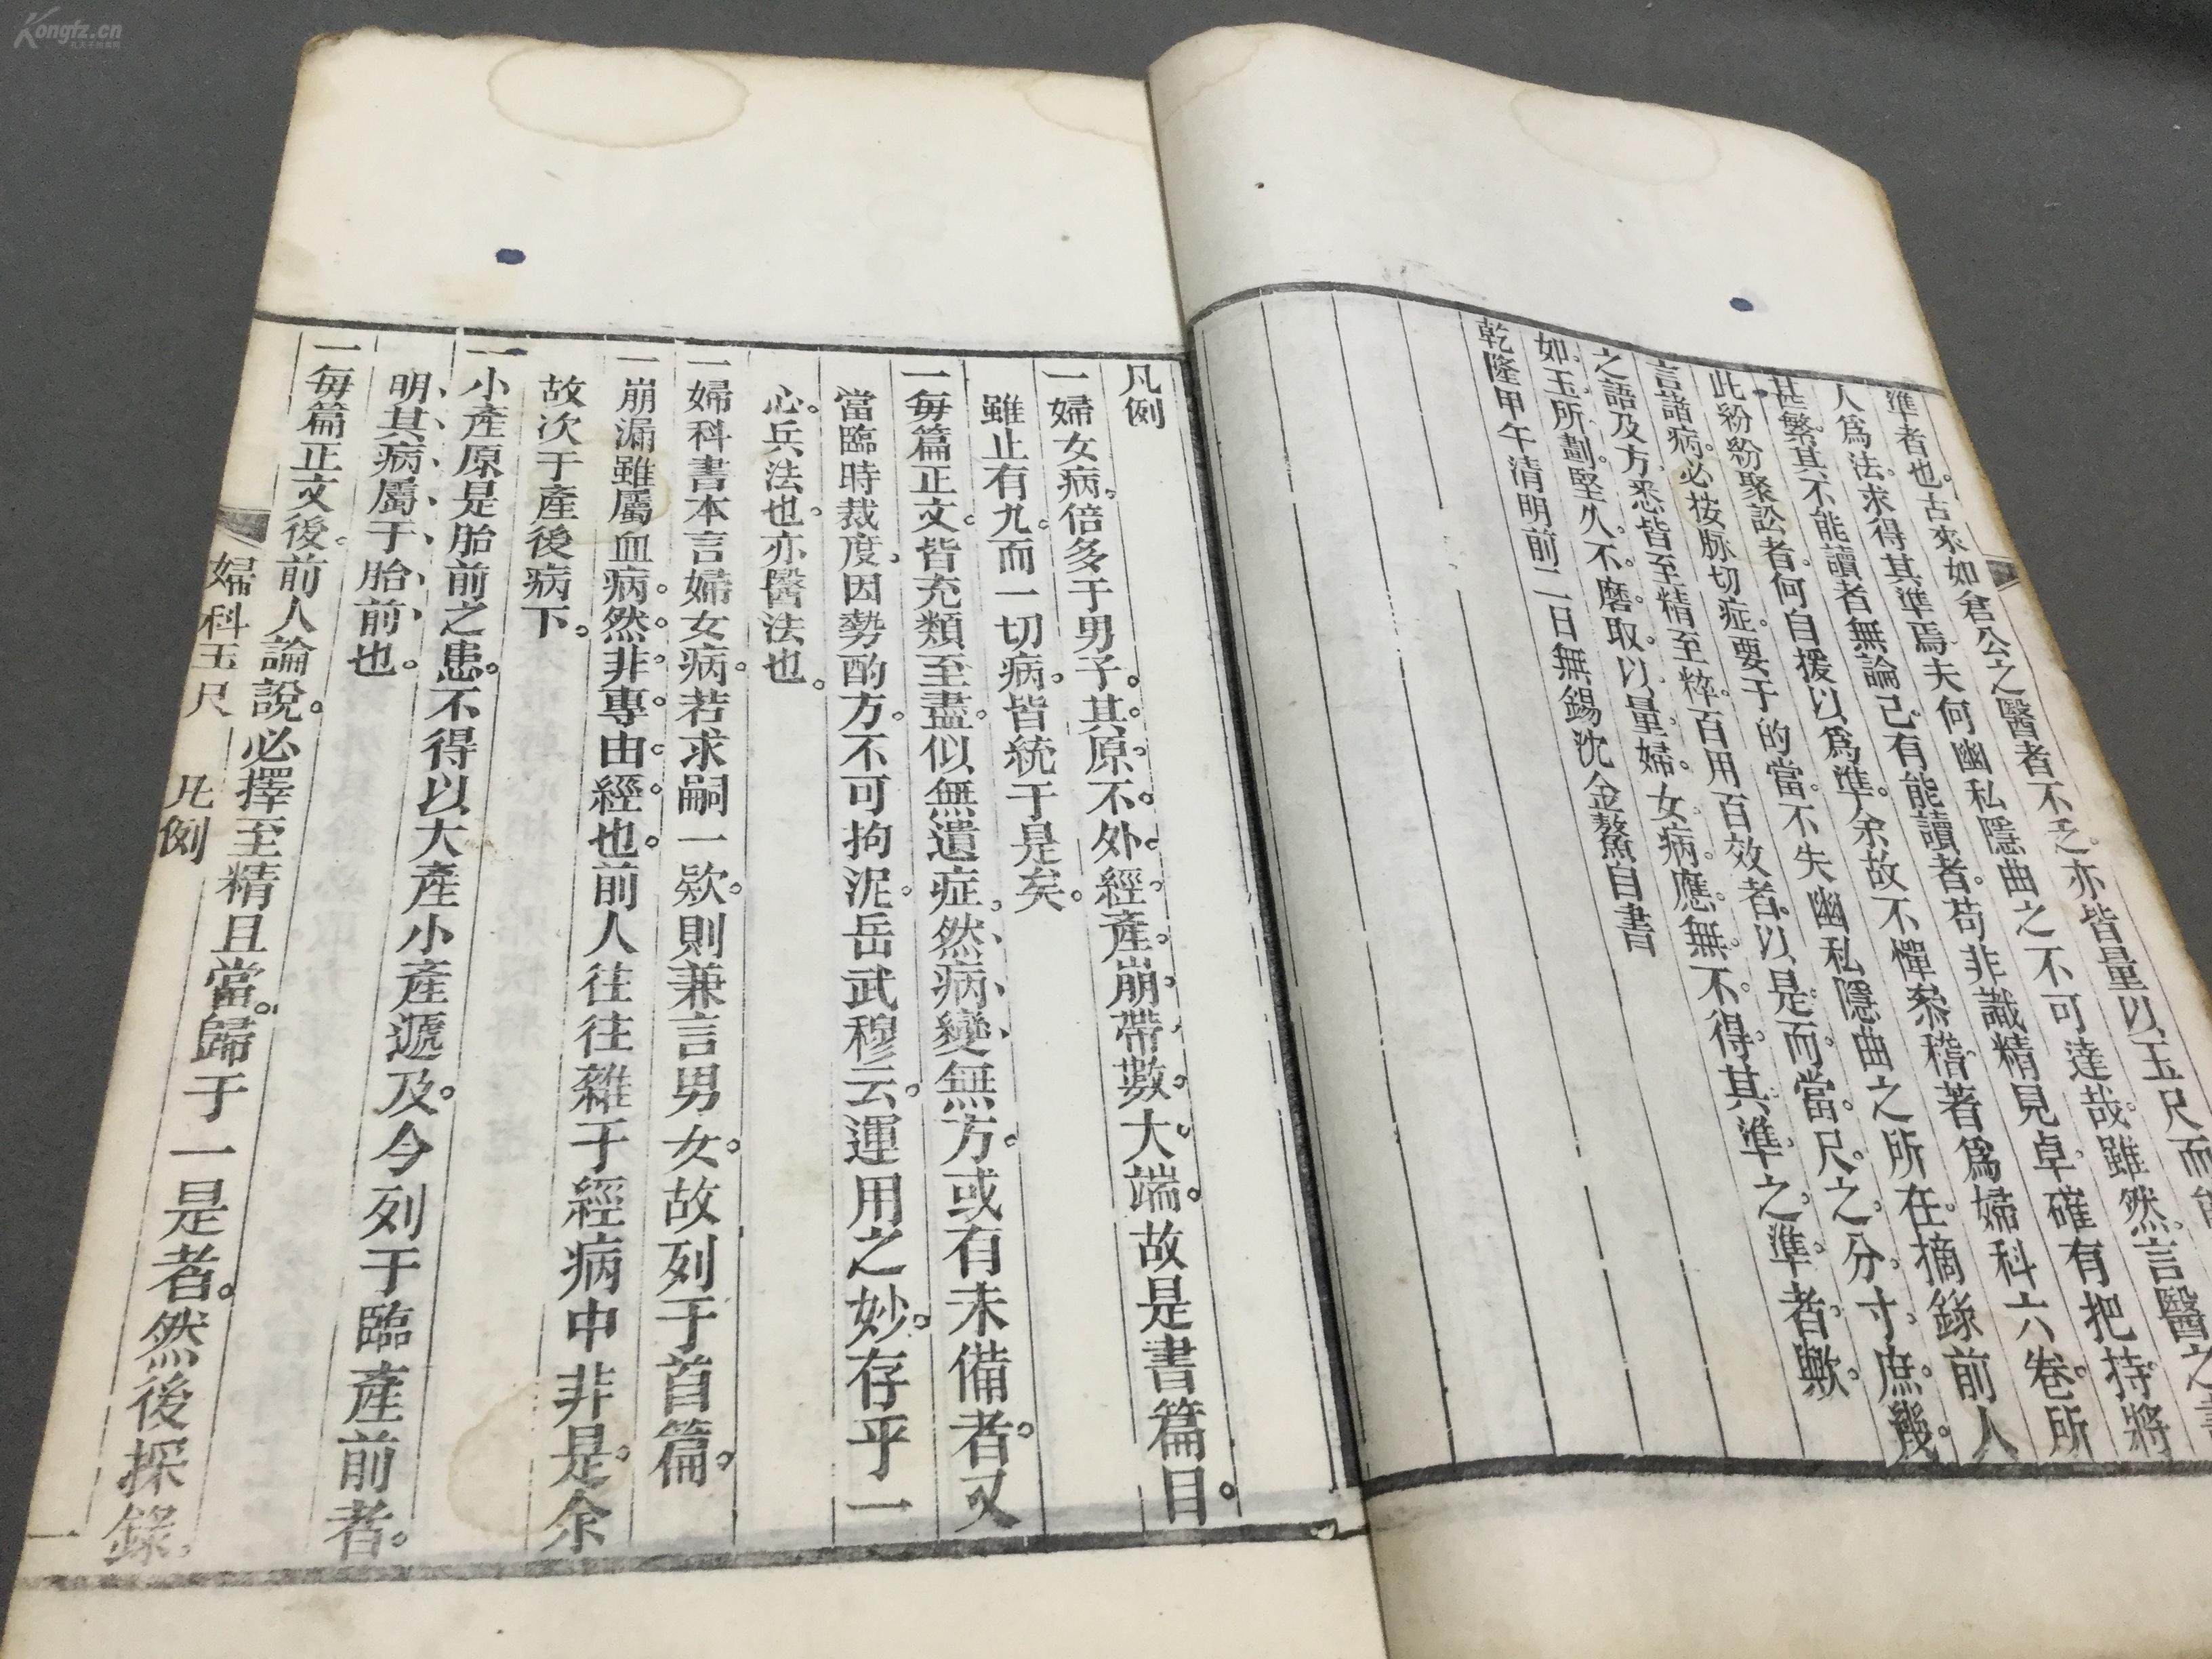 準者也。古來如倉公之醫者不乏。亦皆量以玉尺而
人爲法。求得其準焉。夫何幽私隱曲之不可達哉。雖然。言醫之書
甚繁。其不能讀者無論已。有能讀者。苟非識精見卓。確有把持。將
此紛紛聚訟者。何自援以爲準。余故不憚叅稽。著爲婦科六卷。所
言諸病。必按脉切症。要于的當。不失幽私隱曲之所在。摘錄前人
之語及方。悉皆至精至粹。百用百效者。以是而當尺之分寸。庶幾
如玉所劃。堅久不磨。取以量婦女病。應無不得其準之準者歟。
乾隆甲午清明前二日無錫沈金鰲自書
凡例
一婦女病。倍多于男子。其原不外經產崩帶數大端。故是書篇目。
雖止有九。而一切病。皆統于是矣。
一每篇正文。皆充類至盡。似無遺症。然病變無方。或有未備者。又
當臨時裁度。因勢酌方。不可拘泥。岳武穆云。運用之妙。存乎一
心。兵法也。亦醫法也。
一婦科書本言婦女病。若求嗣一欵。則兼言男女。故列于首篇。
一崩漏雖屬血病。然非專由經也。前人往往雜于經病中非是。余
故次于產後病下。
一小產原是胎前之患。不得以大產小產遞及。今列于臨產前者。
明其病屬于胎前也。
一每篇正文後。前人論說。必擇至精且當。歸于一是者。然後採錄,
婦科玉尺 凡例 一
Kongfz.cn